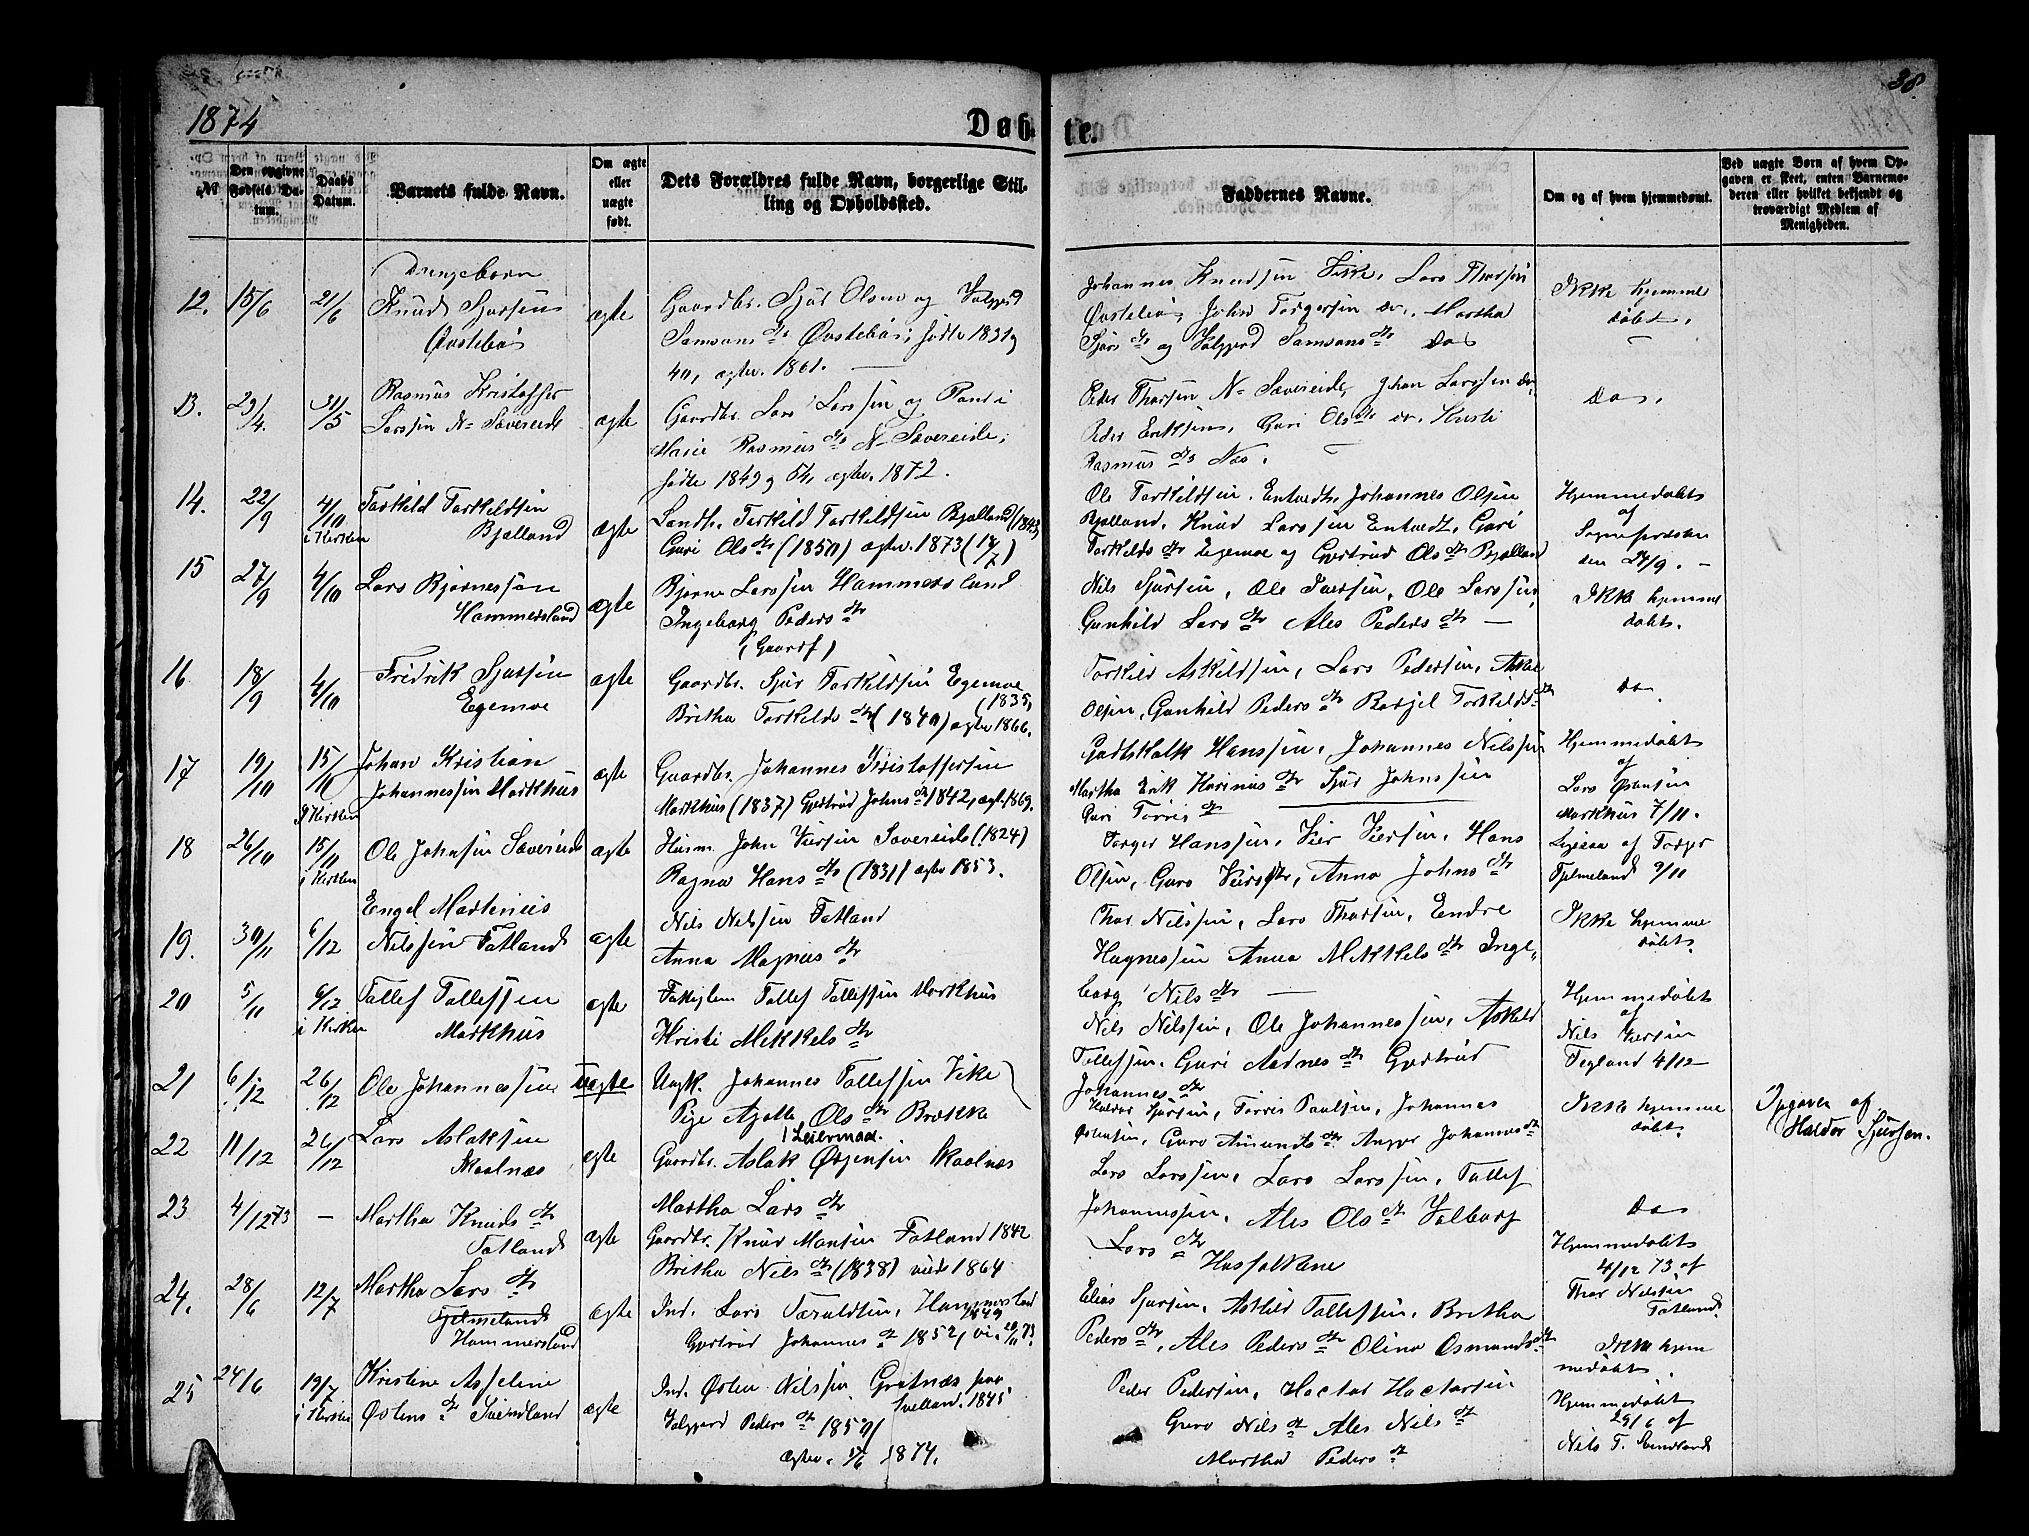 38.
1874
Døbte.
№
Den opgivne Fødsels Datum.
Daabs Datum.
Barnets fulde Navn.
Om ægte eller uægte født.
Dets Forældres fulde Navn, borgerlige Stilling og Opholdssted.
Faddernes Navne.
Om og af hvem hjemmedømt.
Ved uægte Børn af hvem Opgaven er skeet, enten Barnemoderen eller hvilket bekjendt og troværdigt Medlem af Menigheden.
Drengebørn
12. 15/6 21/6 Knud Sjursen
Øvstebøs
ægte
Gaardbr. Sjur Olsen og Valgjerd
Samsons dtr Øvstebøs; fødte 1831 og
40, ægtev. 1861.
Johannes Knudssen Vike, Lars Tharsen
Øvstebø, John Torgersen do, Martha
Sjurs dtr og Valgjerd Samsons dtr do
Ikke hjemme
døbt.
13. 23/4. 31/5 Rasmus Kristoffer
Larssen N- Sævereide
ægte
Gaardbr. Lars Larssen og
Marie Rasmus dtr N- Sævereide;
fødte 1849 og 54, ægtev. 1872.
Peder Tharsen N- Sævereide, Johan Larssen do,
Peder Eriksen, Guri Ols dtr do. Kristi
Rasmus dtr Næs.
do.
14. 22/9 4/10 i Kirken Torkild Torkildsen
Bjælland
ægte
Landh. Torkild Torkildsen Bjælland (1843)
Guri Ols dtr (1850) ægtev. 1873
Ole Torkildsen Entvedt, Johannes Olsen
Bjælland, Knud Larssen Entvedt, Guri
Torkilds dtr Egemoe og Gjertrud Ols dtr Bjælland
Hjemmedøbt
af
Sognepræsten
den 24/9.
15 27/9 4/10 Lars Bjørnessøn
Hammersland
ægte
Bjørne Larssen Hammersland
Ingeborg Peders dtr
(Gaardf)
Nils Sjursen, Ole Iversen, Ole Larssen,
Gunhild Lars dtr Ales Peders dtr
Ikke hjemme
døbt.
16 18/9 4/10 Fredrik Sjursen
Egemoe
ægte
Gaardbr. Sjur Torkildsen Egemoe
(1835)
Britha Torkilds dtr (1840) ægtev 1866.
Torkild Askildsen, Lars Pedersen, Askel
Olsen, Gunhild Peders dtr Torkilds dtr
do.
17 19/10 15/11 I Kirken Johan Kristian
Johannessen Markhus
ægte
Gaardbr. Johannes Kristoffersen
Markhus (1837) Gjertrud Johns dtr 1842, ægt. 1869.
Godtskalk Hanssen, Johannes Nilssen
Martha Erik Karinus dtr Sjur Johnssen
Guri Torris dtr
Hjemmedøbt
af
Lars Østensen
Markhus 7/11.
18 26/10 15/11 i Kirken Ole Johnsen Sævereide
ægte
Husm. John Viersen Sævereide (1824)
Ragna Hans dtr (1831) ægtev 1853.
Torger Hanssen, Vier Viersen, Hans
Olsen, Guro Viers dtr, Anna Johns dtr
Ligesaa af Torger
Fjelmeland 9/11
19. 30/11 6/12 Engel Martinius
Nilssen Fatland
ægte
Nils Nilssen Fatland
Anna Magnus dtr
Thor Nilssen, Lars Tharsen, Endre
Magnessen Anna Mikkels dtr Inge-
borg Nils dtr
Ikke hjemme
døbt.
20 5/11 6/12 i Kirken Tollef Tollefsen
Markhus
ægte
Tollef Tollefsen Markhus
Kristi Mikkels dtr
Nils Nilssen, Ole Johannessen, Askild
Tollefsen, Guri Aadnes dtr Gjertrud
Johannes dtr
Hjemmedøbt
af
Nils Viersen
Tegland 4/12
21 6/12 26/12 Ole Johannessen
uægte
Ungk. Johannes Tollefsen Vike
Pige Agatte Ols dtr Brekke
1 Leiermaal.
Haldor Sjursen, Torris Paulsen, Johannes
Østensen, Guro Amunds dtr Johannes dtr
Ikke hjemme
døbt.
Opgaven af
Haldor Sjursen.
22 11/12 26/12 Lars Aslaksen
Skaalnæs
ægte
Gaardbr. Aslak Skaalnæs
Martha Lars dtr
Lars Larssen, Lars Larssen, Tollef
Johannessen, Ales Ols dtr Valborg
Lars dtr
Husfolkene
do
23 4/12 73 — Martha Knuds dtr
Fatland
ægte
Gaardbr. Knud Monsen Fatland 1842
Britha Nils dtr (1838) viede 1864
Hjemmedøbt
4/12 73 af
Thor Nilssen
Fatland
24. 28/6 12/7 Martha Lars dtr
Fjelmeland
Hammersland
ægte
Ind. Lars Taraldsen, Hammersland
1849
Gjertrud Johannes dtr 1852, vi. 73.
Elias Sjursen, Askild Tollefsen, Britha
Peders dtr, Ales Peders dtr Olina Osmunds dtr
Ikke hjem
medøbt.
25 24/6 19/7 i Kirken Kristine Asseline
Østens dtr Svendland
ægte
Ind. Østen Nilssen Gretnæs paa
1845
Valgjerd Peders dtr 1850
ægtev. 1874.
Peder Pedersen, Hactor Hactorsen
Guro Nils dtr Ales Nils dtr
Martha Peders dtr
Hjemmedøbt
29/6 af
Nils T. Svendland